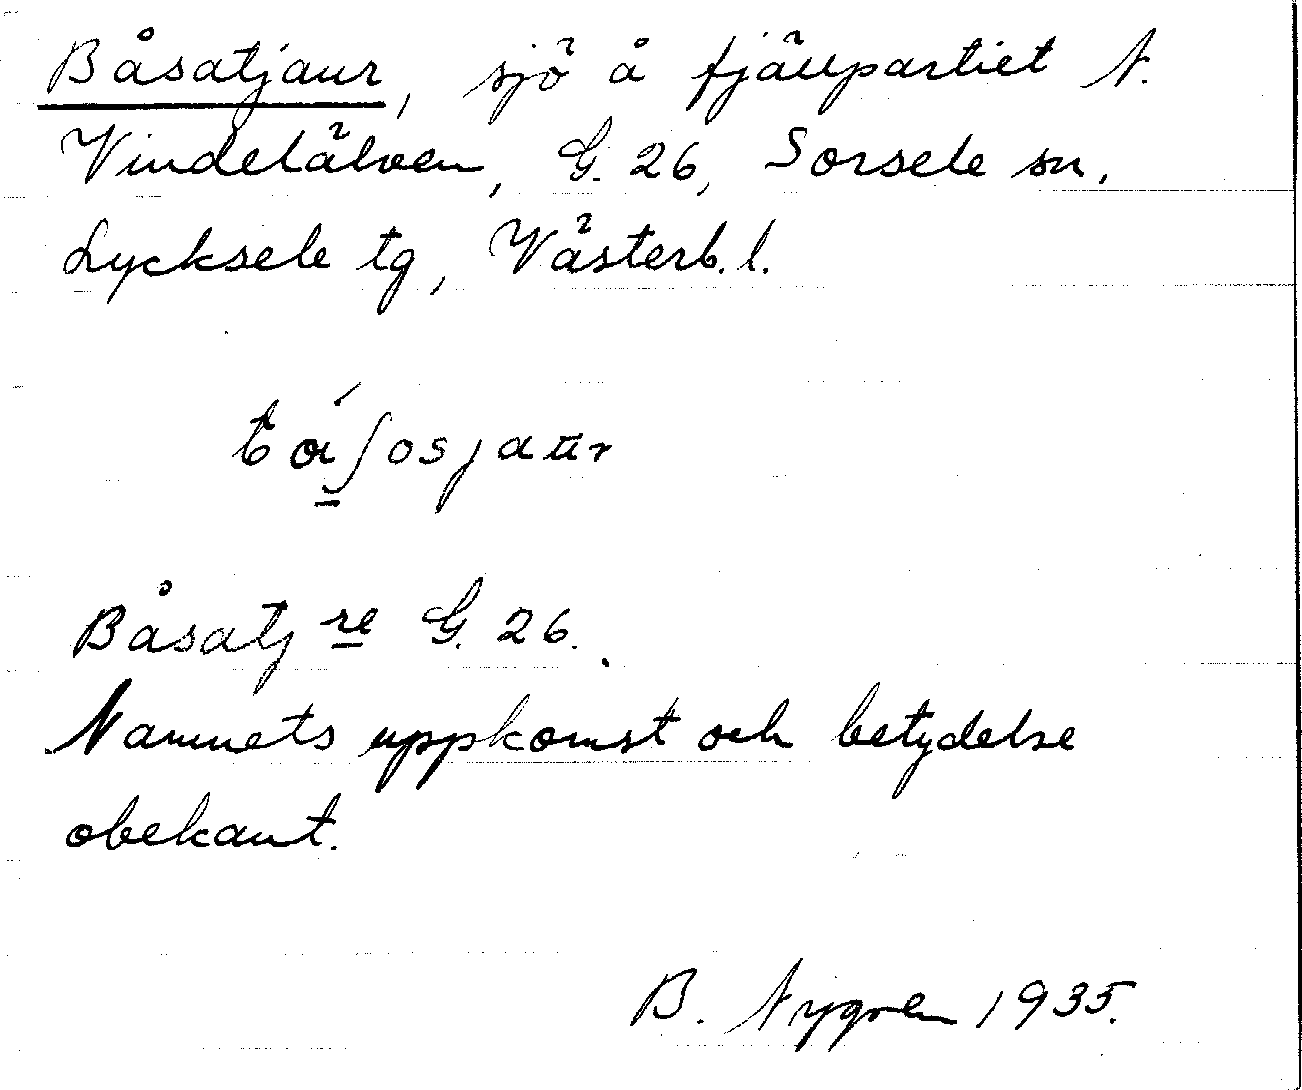 Båsatjaur, sjö å fjällpartiet N.
Vindelälven, G. 26, Sorsele sn.
Lycksele tg, Västerb. l.
Båsatj re G. 26.
Namnets uppkomst och betydelse
obekant.
B. Nygren 1935.